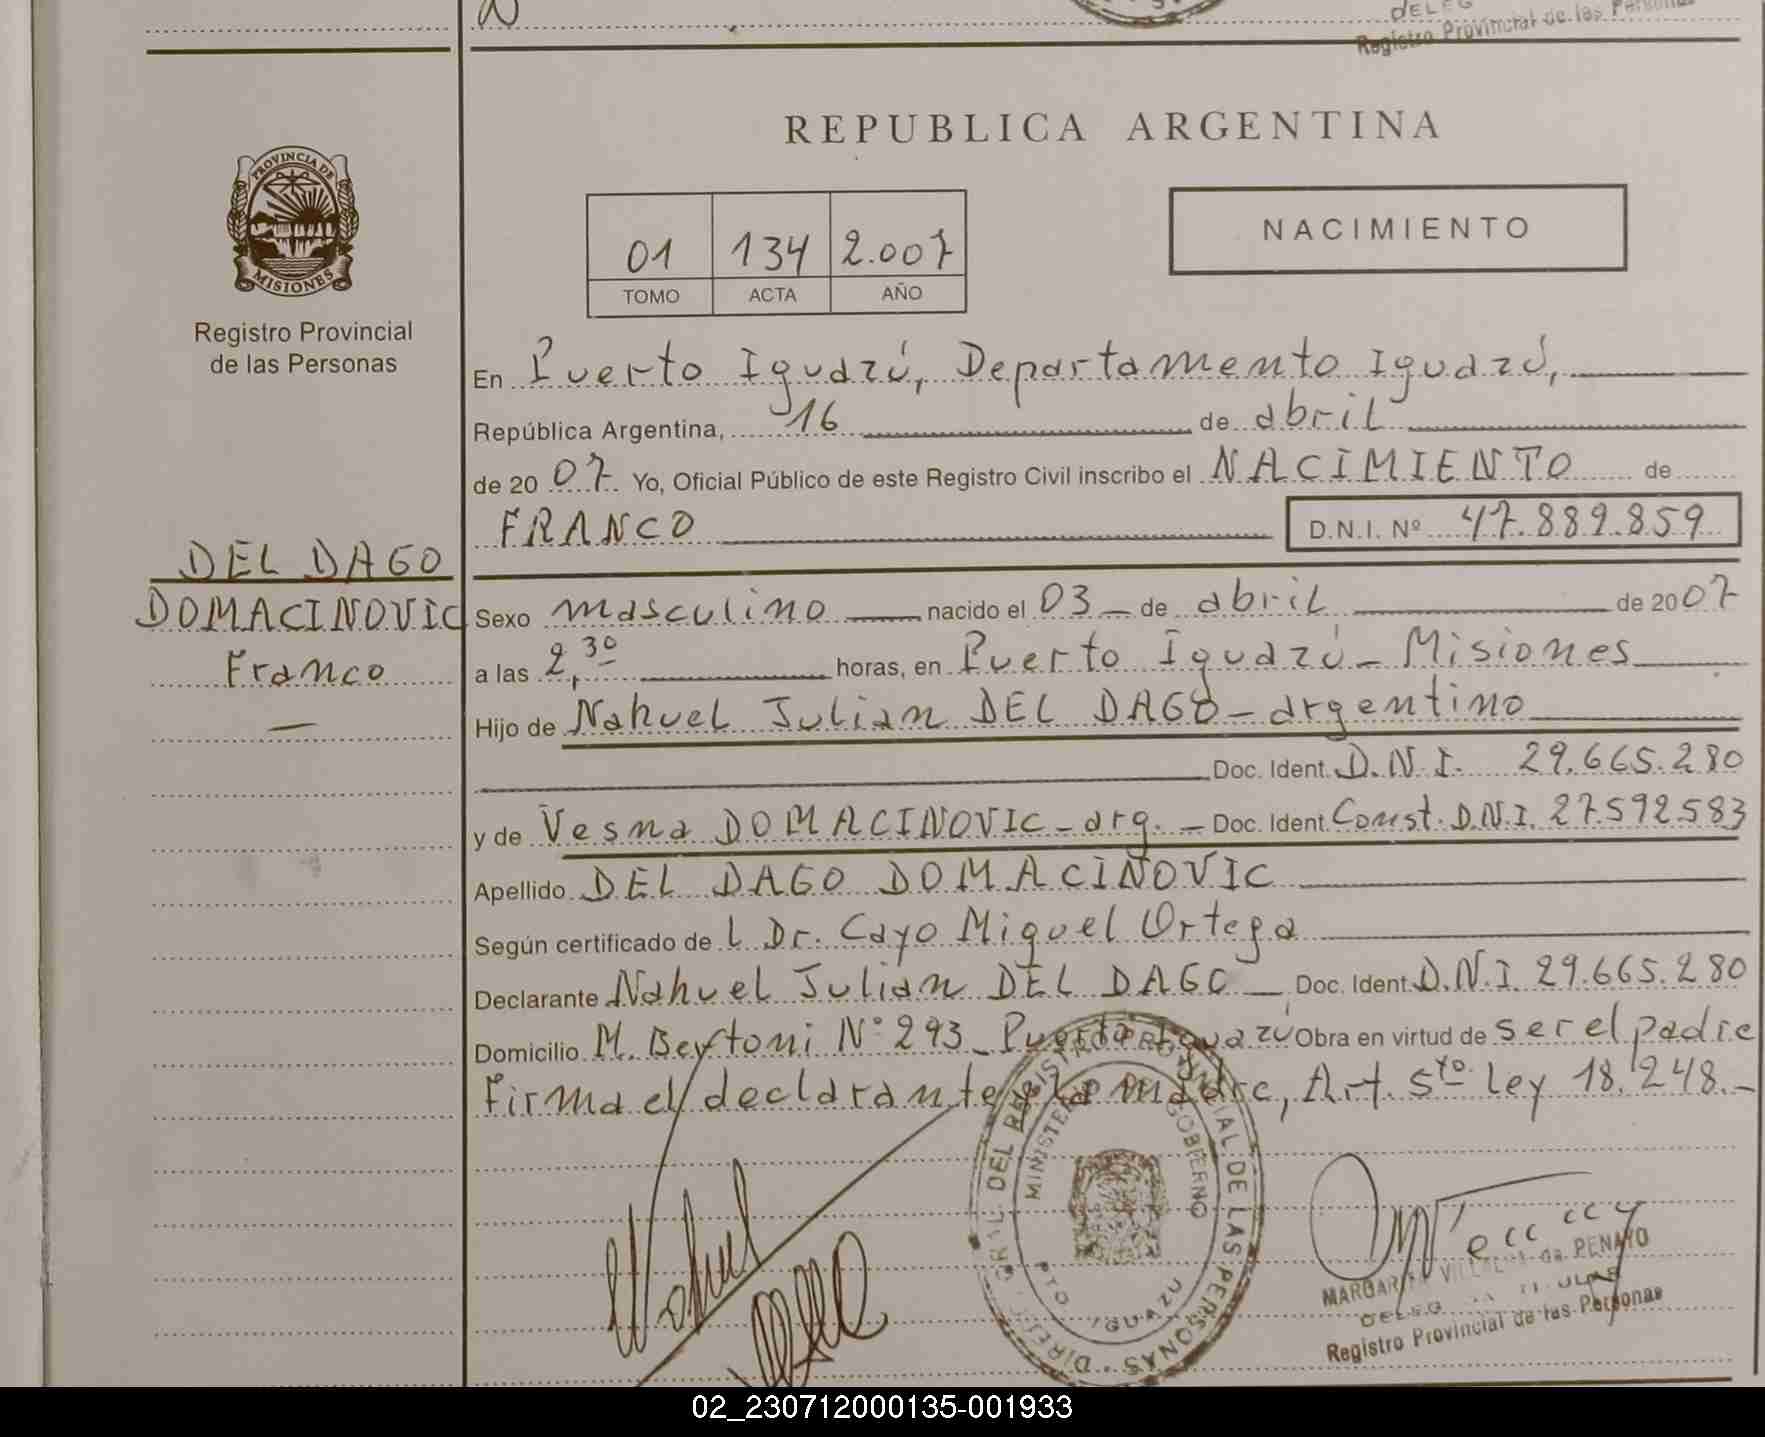 Registro Provincial de las Personas
REPUBLICA ARGENTINA
PROVINCIA DE
MISIONES
Registro Provincial
de las Personas
01 134 2.007
TOMO ACTA AÑO
NACIMIENTO
En Puerto Iguazú, Departamento Iguazú,
República Argentina, 16 de abril
de 20 07 Yo, Oficial Público de este Registro Civil inscribo el NACIMIENTO de
FRANCO D.N.I. Nº 47.889.859
DEL DAGO
DOMACINOVIC
Franco
—
Sexo masculino nacido el 03 de abril de 2007
a las 2,30 horas, en Puerto Iguazú - Misiones
Hijo de Nahuel Julian DEL DAGO - argentino
Doc. Ident. D.N.I. 29.665.280
y de Vesna DOMACINOVIC - arg. - Doc. Ident. Const. D.N.I. 27.592.583
Apellido DEL DAGO DOMACINOVIC
Según certificado de l Dr. Cayo Miguel Ortega
Declarante Nahuel Julian DEL DAGO - Doc. Ident. D.N.I. 29.665.280
Domicilio M. Bertoni Nº 293 - Puerto Iguazú Obra en virtud de ser el padre
Firma el declarante y la madre, Art. 5to Ley 18.248.-
Nahuel
DIREC. GRAL DEL REGISTRO PROVINCIAL DE LAS PERSONAS
MINISTERIO DE GOBIERNO
PTO. IGUAZU
MARGARITA VILLALBA de PENAYO
Registro Provincial de las Personas
02_230712000135-001933